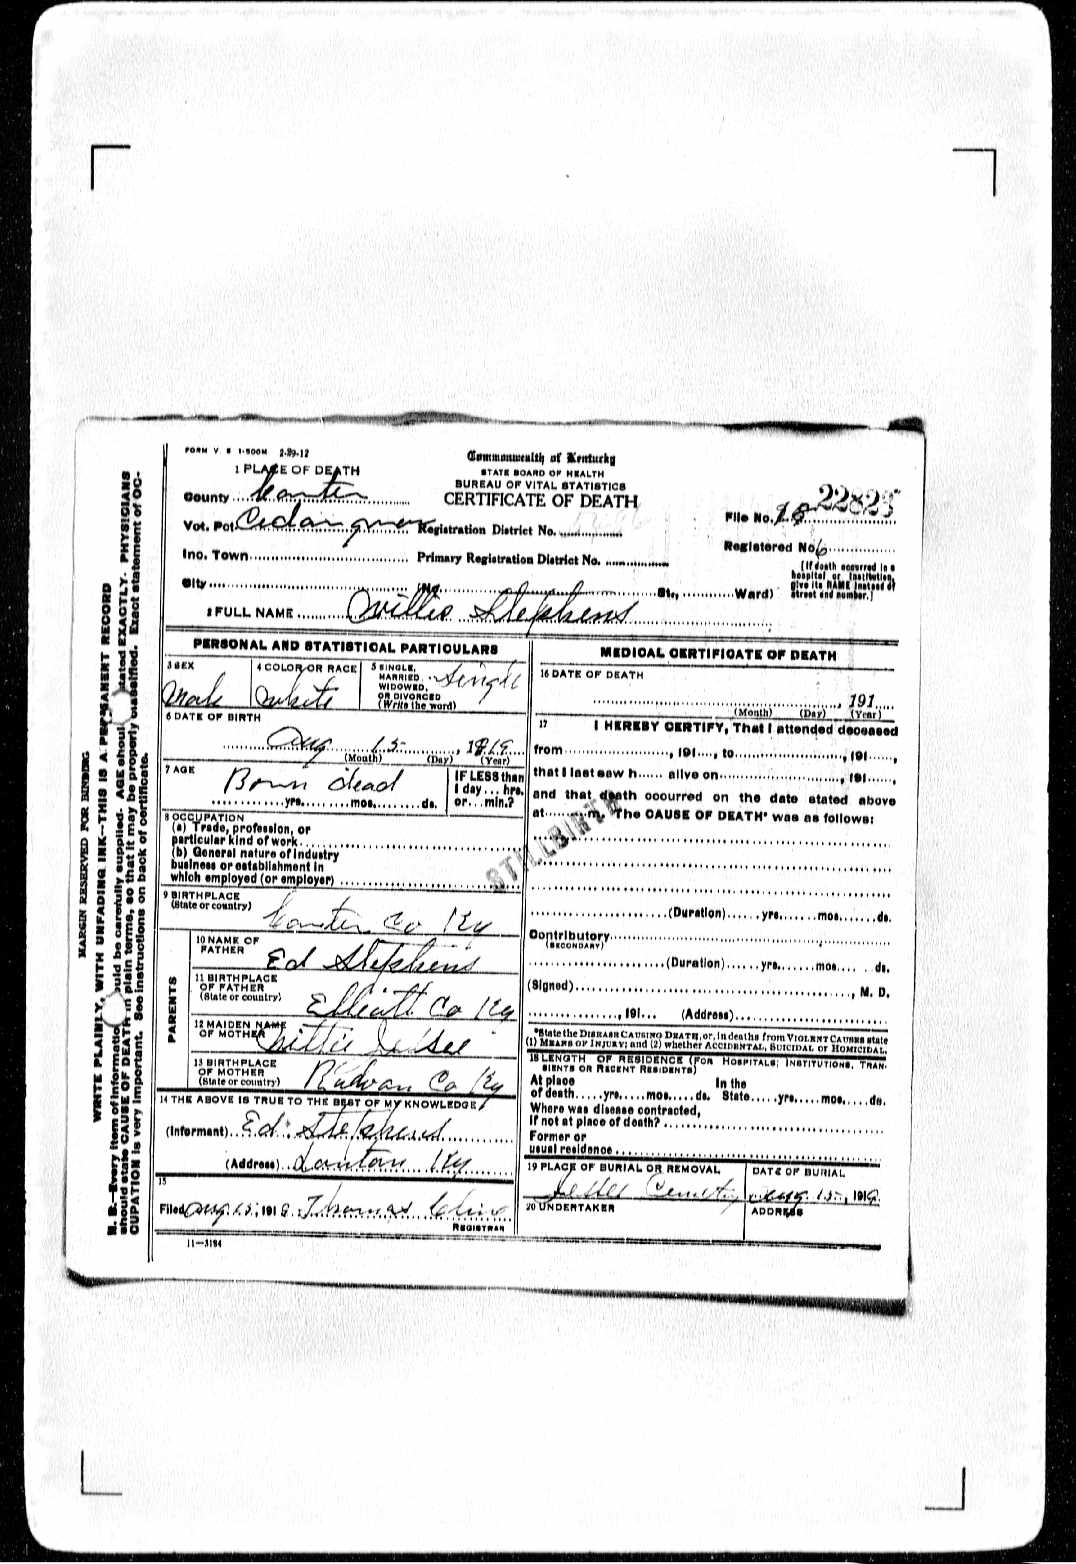 FORM V. S 1-500M 2-29-12
Commonwealth of Kentucky
STATE BOARD OF HEALTH
BUREAU OF VITAL STATISTICS
CERTIFICATE OF DEATH
1 PLACE OF DEATH
County Carter
Vot. Pct. Registration District No.
File No. 18 22823
Inc. Town Primary Registration District No.
Registered No 6
City (No. St., Ward)
[If death occurred in a hospital or institution, give its NAME instead of street and number.]
2 FULL NAME Willis Stephens
PERSONAL AND STATISTICAL PARTICULARS
3 SEX Male
4 COLOR OR RACE White
5 SINGLE, MARRIED, WIDOWED, OR DIVORCED (Write the word) Single
6 DATE OF BIRTH
Aug 15, 1919
(Month) (Day) (Year)
7 AGE Born dead
yrs. mos. ds.
IF LESS than 1 day... hrs. or... min.?
8 OCCUPATION
(a) Trade, profession, or particular kind of work
(b) General nature of industry business or establishment in which employed (or employer)
9 BIRTHPLACE (State or country) Carter Co Ky
PARENTS
10 NAME OF FATHER Ed Stephens
11 BIRTHPLACE OF FATHER (State or country) Elliott Co Ky
12 MAIDEN NAME OF MOTHER
13 BIRTHPLACE OF MOTHER (State or country) Co Ky
14 THE ABOVE IS TRUE TO THE BEST OF MY KNOWLEDGE
(Informant) Ed Stephens
(Address) Ky
15
Filed Aug 15, 1919 Thomas
REGISTRAR
11-3184
MEDICAL CERTIFICATE OF DEATH
16 DATE OF DEATH
, 191
(Month) (Day) (Year)
17 I HEREBY CERTIFY, That I attended deceased
from , 191 , to , 191 ,
that I last saw h alive on , 191 ,
and that death occurred on the date stated above
at m. The CAUSE OF DEATH* was as follows:
STILLBIRTH
(Duration) yrs. mos. ds.
Contributory (SECONDARY)
(Duration) yrs. mos. ds.
(Signed) , M. D.
, 191 (Address)
*State the DISEASE CAUSING DEATH, or, in deaths from VIOLENT CAUSES state
(1) MEANS OF INJURY; and (2) whether ACCIDENTAL, SUICIDAL or HOMICIDAL.
18 LENGTH OF RESIDENCE (FOR HOSPITALS, INSTITUTIONS, TRANSIENTS OR RECENT RESIDENTS)
At place of death yrs. mos. ds. In the State yrs. mos. ds.
Where was disease contracted,
If not at place of death?
Former or
usual residence
19 PLACE OF BURIAL OR REMOVAL
Cemetery
DATE OF BURIAL
Aug. 15, 1919
20 UNDERTAKER
ADDRESS
MARGIN RESERVED FOR BINDING
WRITE PLAINLY, WITH UNFADING INK--THIS IS A PERMANENT RECORD
N. B.--Every item of information should be carefully supplied. AGE should stated EXACTLY. PHYSICIANS
should state CAUSE OF DEATH in plain terms, so that it may be properly classified. Exact statement of OC-
CUPATION is very important. See instructions on back of certificate.